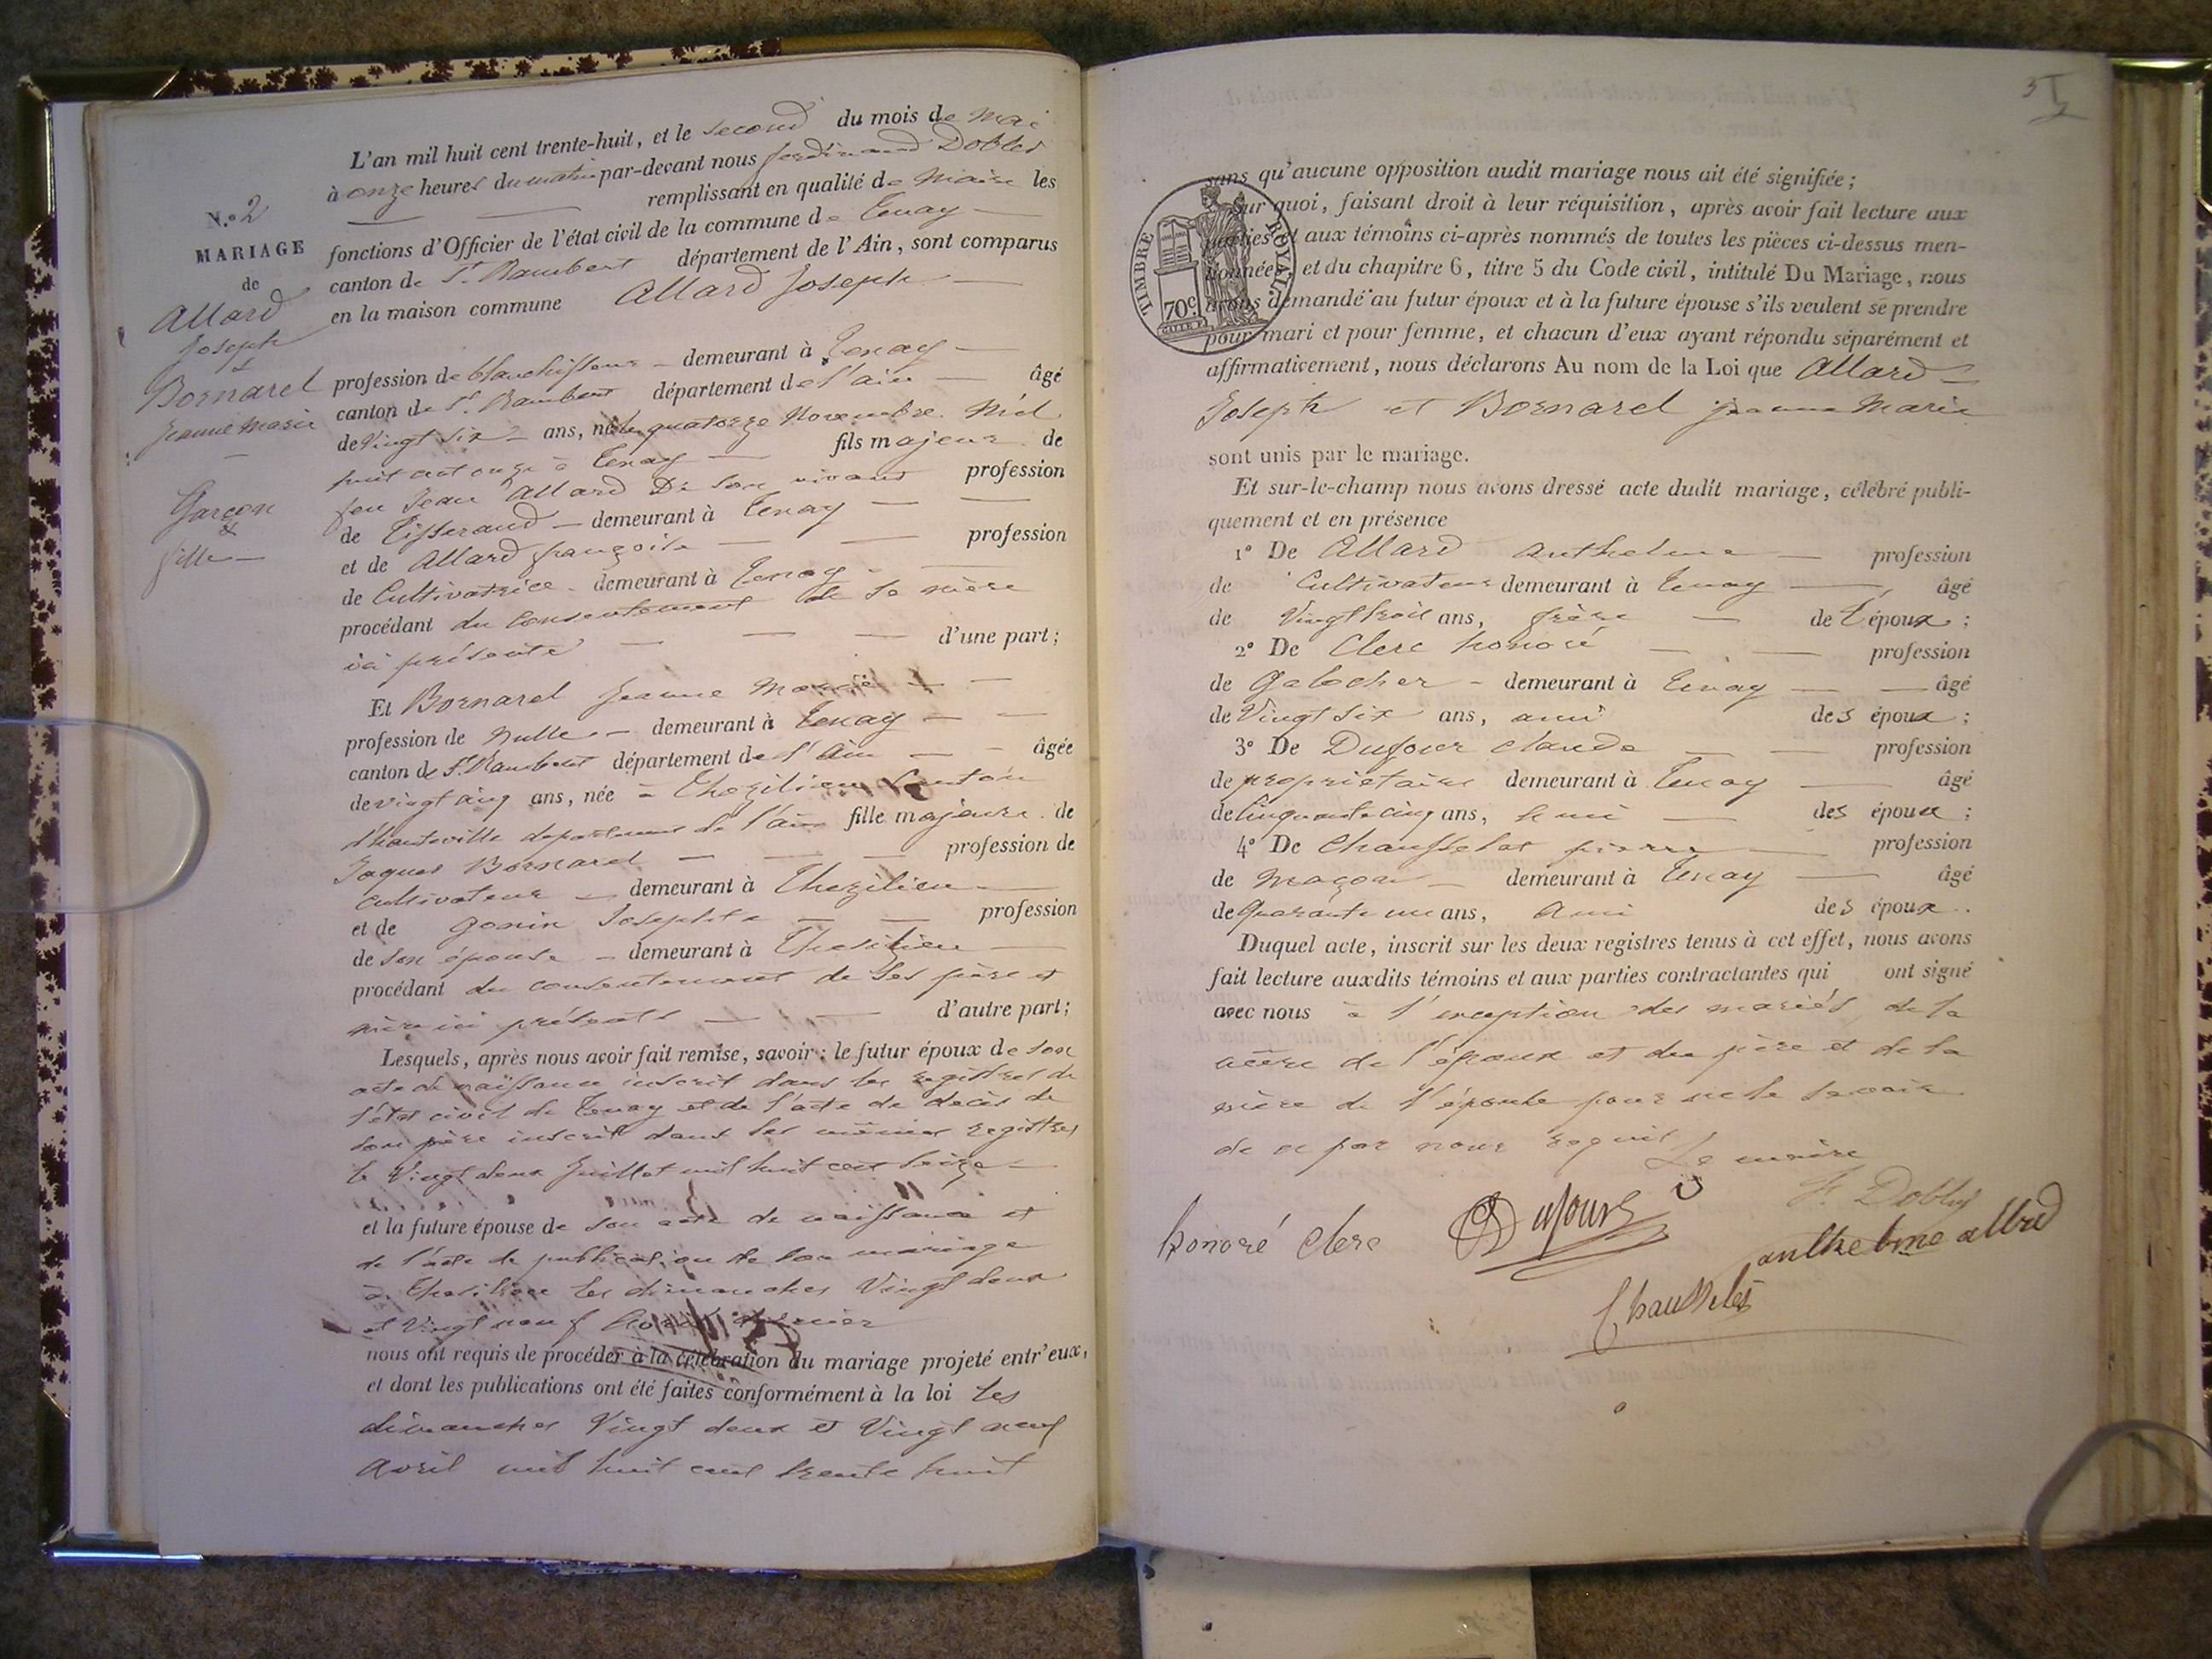 L'an mil huit cent trente-huit, et le second du mois de mai
à onze heures du matin par-devant nous ferdinand Dobler
remplissant en qualité de Maire les
N.º 2
MARIAGE
de
Allard
Joseph
&
Bornarel
Jeanne Marie
Garçon
&
fille
fonctions d'Officier de l'état civil de la commune de Tenay
canton de St. Rambert département de l'Ain, sont comparus
en la maison commune Allard Joseph
profession de blanchisseur demeurant à Tenay
canton de St. Rambert département de l'ain âgé
de Vingt six ans, né le quatorze Novembre Mil
huit cent onze à Tenay fils majeur de
feu Jean Allard De son vivant profession
de Tisserand demeurant à Tenay
et de Allard françoise profession
de Cultivatrice demeurant à Tenay
procédant du Consentement de sa mère
ici présente d'une part;
Et Bornarel Jeanne Marie
profession de Nulle demeurant à Tenay
canton de St. Rambert département de l'ain âgée
de vingt cinq ans, née à Thezilieu Canton
d'hauteville departement de l'ain fille majeure de
Jaques Bornarel profession de
cultivateur demeurant à Thezilieu
et de gonin Josephte profession
de son épouse demeurant à Thesilieu
procédant du consentement de ses père et
mère ici présents d'autre part;
Lesquels, après nous avoir fait remise, savoir: le futur époux de son
acte de naissance inscrit dans les registres de
l'état civil de Tenay et de l'acte de décès de
son père inscrit dans les mêmes registres
le Vingt deux Juillet mil huit cent seize
et la future épouse de son acte de naissance et
de l'acte de publication de son mariage
à Thesilieu les dimanches Vingt deux
et Vingt neuf Avril dernier
nous ont requis de procéder à la célébration du mariage projeté entr'eux,
et dont les publications ont été faites conformément à la loi les
dimanches Vingt deux et Vingt neuf
avril mil huit cent trente huit
sans qu'aucune opposition audit mariage nous ait été signifiée;
Sur quoi, faisant droit à leur réquisition, après avoir fait lecture aux
parties et aux témoins ci-après nommés de toutes les pièces ci-dessus men-
tionnées, et du chapitre 6, titre 5 du Code civil, intitulé Du Mariage, nous
avons demandé au futur époux et à la future épouse s'ils veulent se prendre
pour mari et pour femme, et chacun d'eux ayant répondu séparément et
affirmativement, nous déclarons Au nom de la Loi que Allard
Joseph et Bornarel jeanne Marie
TIMBRE ROYAL
70c.
sont unis par le mariage.
Et sur-le-champ nous avons dressé acte dudit mariage, célébré publi-
quement et en présence
1º De Allard anthelme profession
de Cultivateur demeurant à Tenay âgé
de Vingt trois ans, frère de l'époux;
2º De Clerc honoré profession
de galocher demeurant à Tenay âgé
de Vingt six ans, ami des époux;
3º De Dufour claude profession
de propriétaire demeurant à Tenay âgé
de Cinquante cinq ans, ami des époux;
4º De Chausselat pierre profession
de maçon demeurant à Tenay âgé
de Quarante un ans, ami des époux.
Duquel acte, inscrit sur les deux registres tenus à cet effet, nous avons
fait lecture auxdits témoins et aux parties contractantes qui ont signé
avec nous à l'exception des mariés de la
mère de l'époux et du père et de la
mère de l'épouse pour ne le savoir
de ce par nous requis
Le maire
F. Dobler
honoré Clerc Dufour
anthelme allard
Chausselat